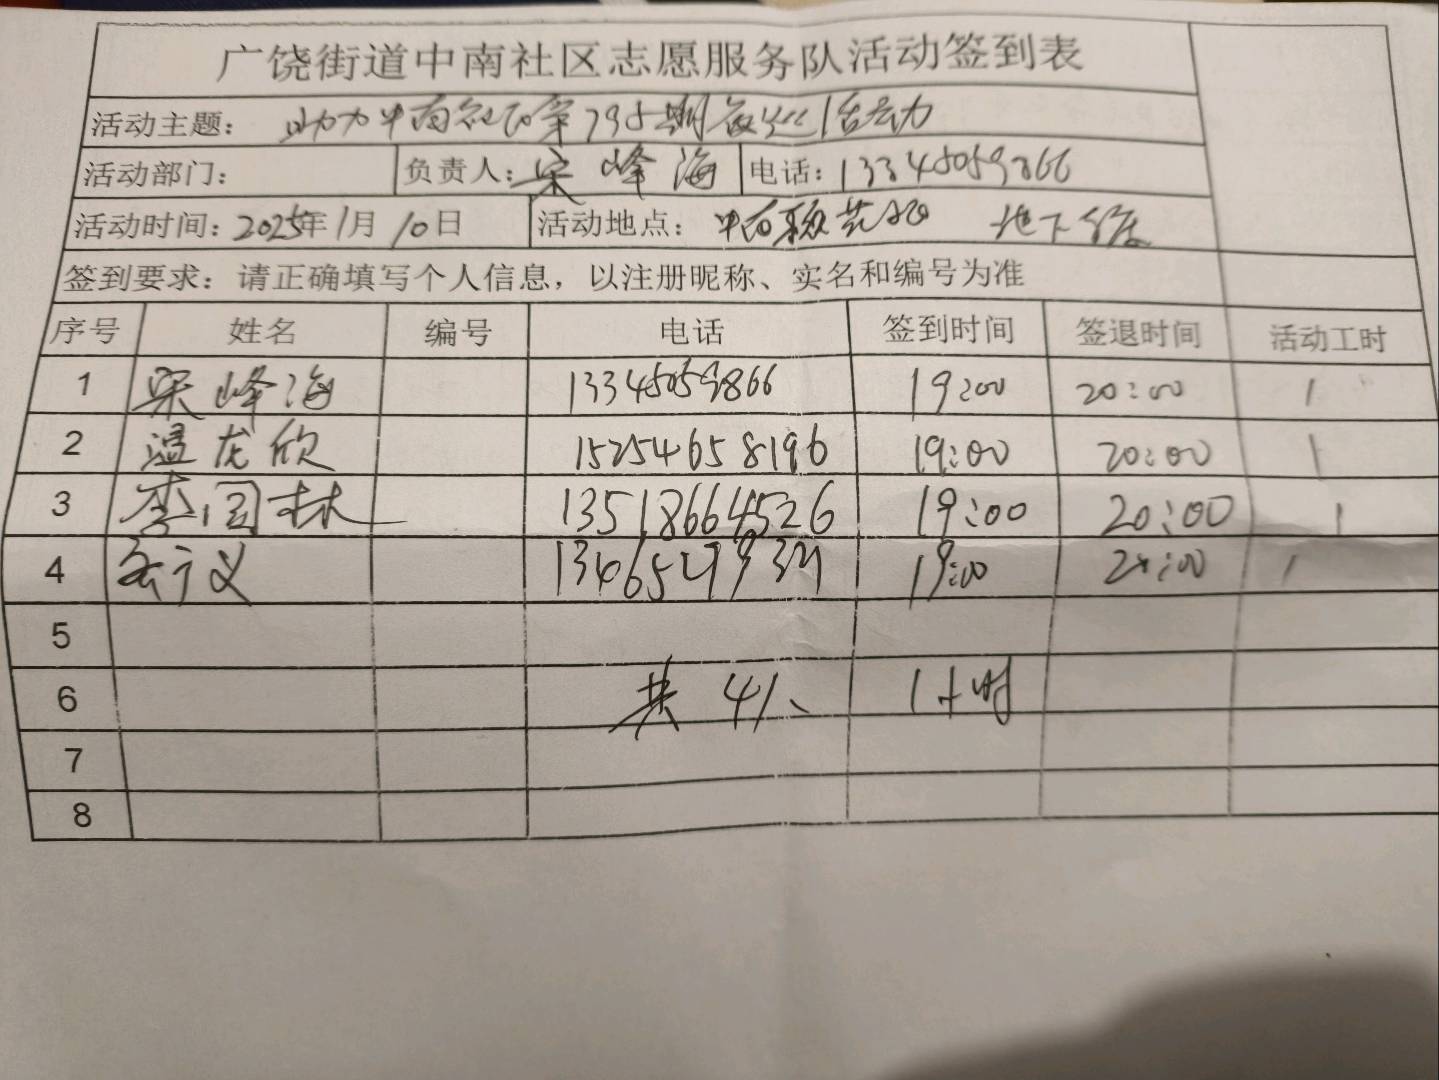 广饶街道中南社区志愿服务队活动签到表
活动主题： 助力中南社区第795期夜巡活动
活动部门： 负责人：宋峰海 电话：13345059866
活动时间：2025年1月10日 活动地点：中南 地下车库
签到要求：请正确填写个人信息，以注册昵称、实名和编号为准
序号 姓名 编号 电话 签到时间 签退时间 活动工时
1 宋峰海 13345059866 19:00 20:00 1
2 温龙欣 15254658196 19:00 20:00 1
3 李国林 13518664526 19:00 20:00 1
4 19:00 20:00 1
5
6 共4人 1小时
7
8